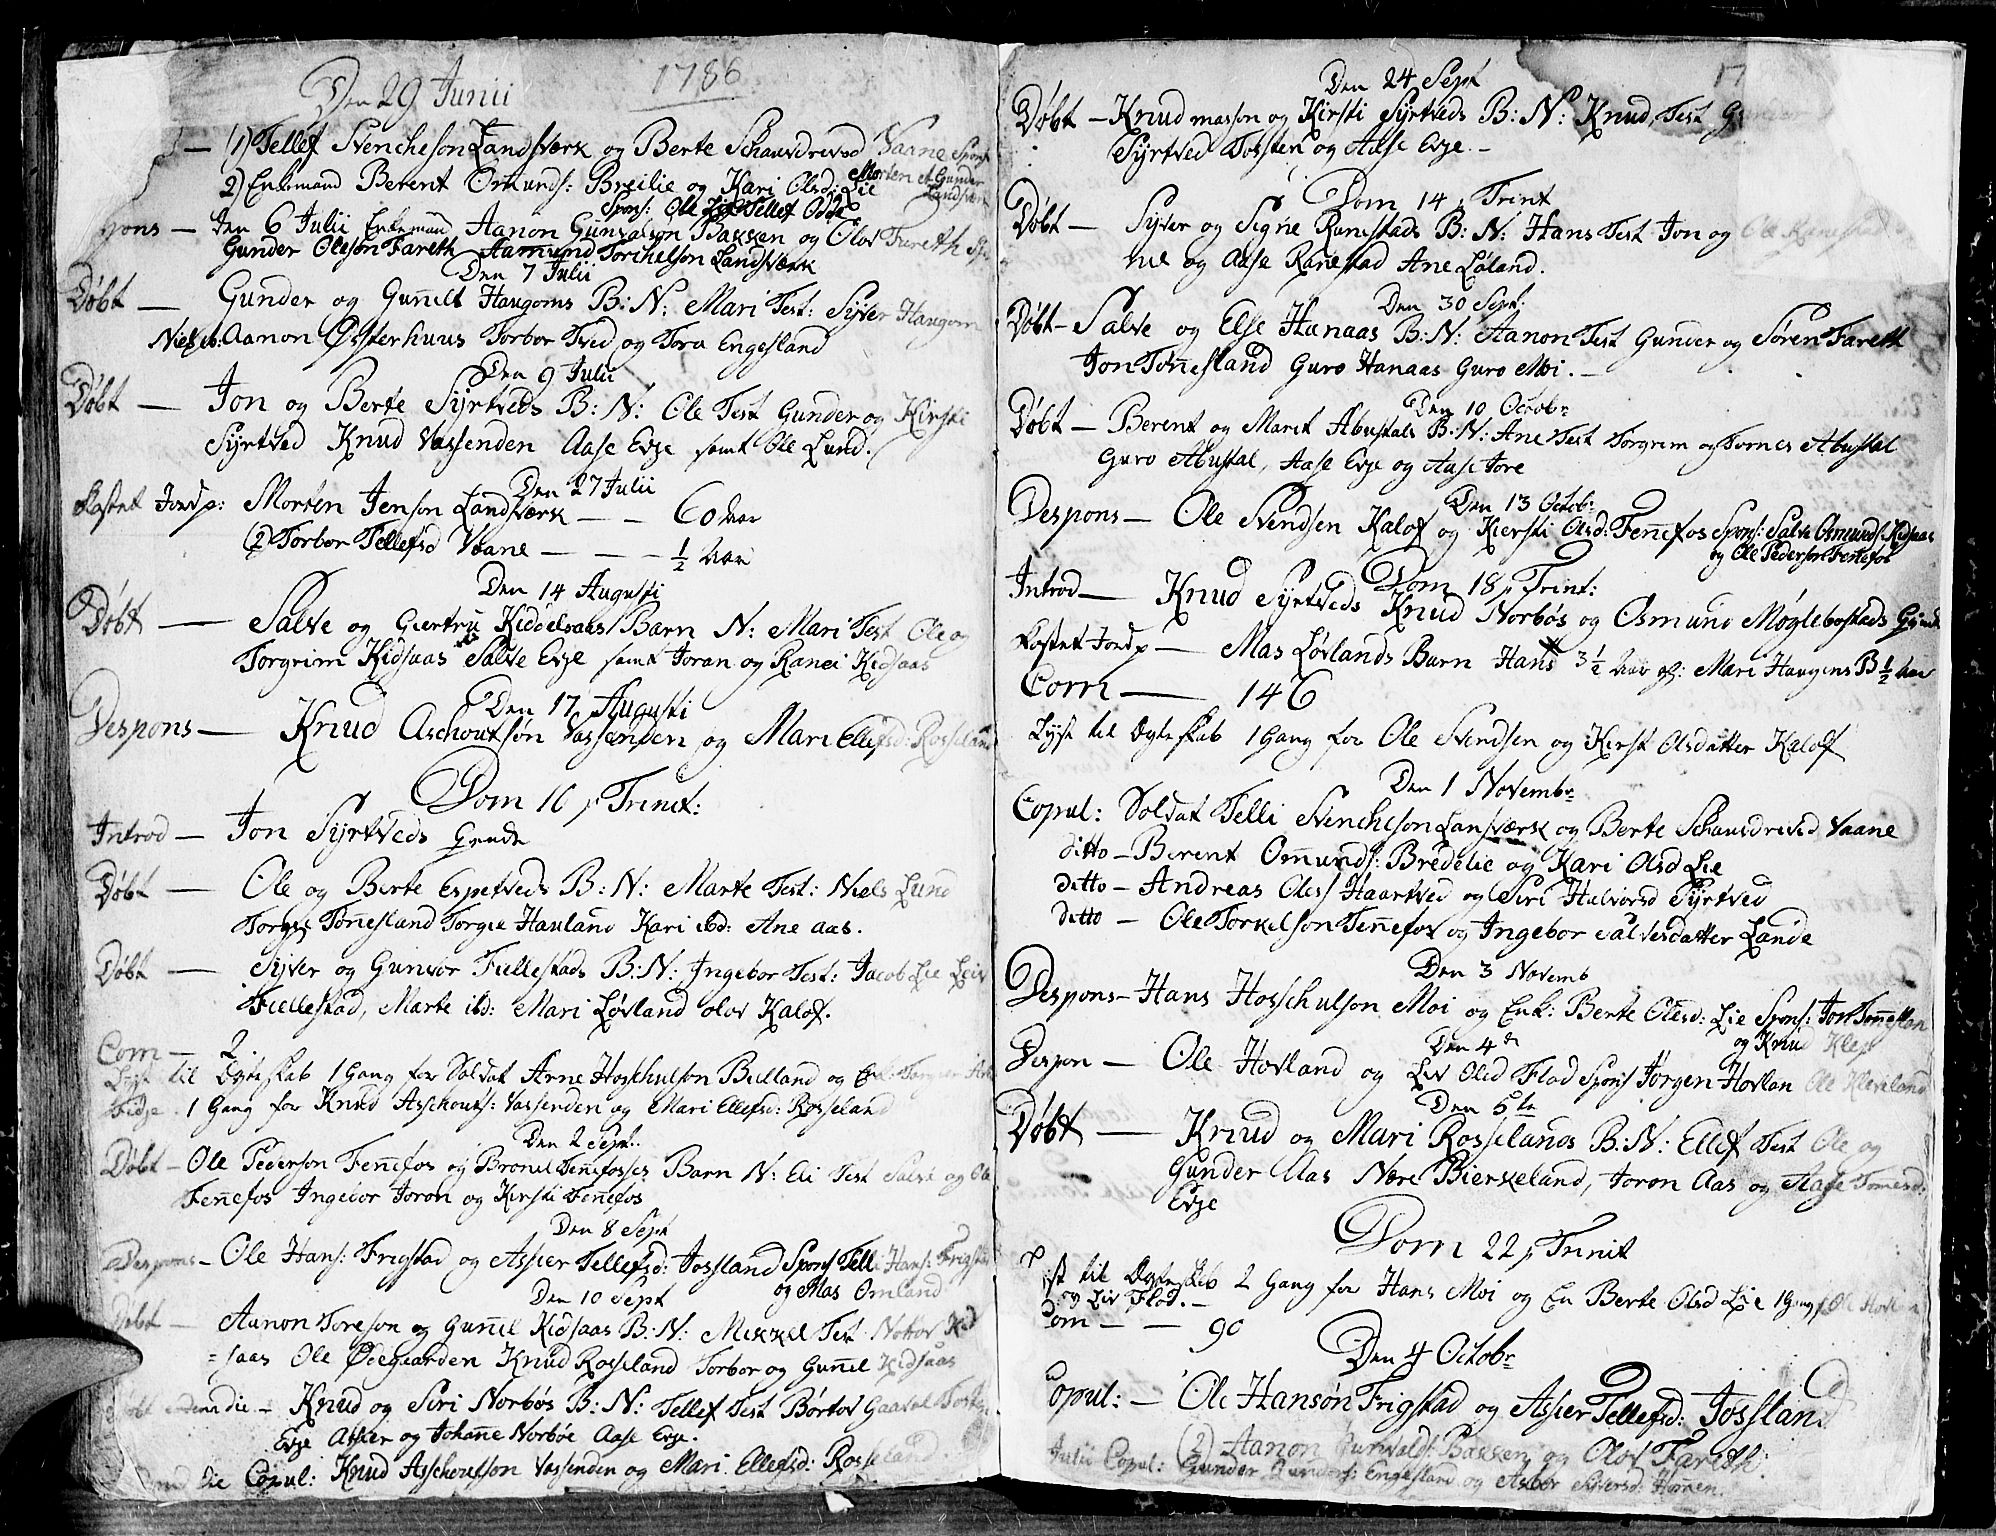 1786
Den 29 Junii
— (1) Tellef Svencheson Landsværk og Berte Schauvdrevsd Vaane Spons
2) Enkemand Berent Omunds: Breilie og Kari Olsd: Lie Morten et Gunder Landsværk
Spons: Ole Lie Tellef Odde
spons — Den 6 Julii Enkemand Aanon Gunvalson Bakken og Olov Fareth Sp:
Gunder Oleson Fareth Aamund Torchelson Landsværk
Den 7 Julii
Døbt — Gunder og Gunnelt Haugoms B: N: Mari Test: Syver Haugom
Niels ib: Aanon Østerhuus Torbor Tved og Tora Engesland
Den 9 Julii
Døbt — Jon og Berte Syrtveds B: N: Ole Test Gunder og Kirsti
Syrtved Knud Vassenden Aase Evje samt Ole Lund.
Den 27 Julii
Kastet Jordp: Morten Jenson Landsværk — — 60 Aar
(2) Torbor Tellefsd Vaane — — — ½ Aar
Den 14 Augusti
Døbt — Salve og Giertru Kiddelsaas Barn N: Mari Test Ole og
Torgrim Kidsaas Salve Evje samt Joran og Ranei Kidsaas
Den 17 Augusti
Despons — Knud Aschoutsøn Vassenden og Mari Ellefsd: Rosseland
Dom 10 p Trinit:
Introd — Jon Syrtveds Qvinde
Døbt — Ole og Berte Espetveds B: N: Marte Test: Niels Lund
Torgs Tønnesland Torgie Hauland Kari ibd: Ane Aas.
Døbt — Syver og Gunvor Fiellestads B: N: Ingebor Test: Jacob Lie Leiv
Fiellestad, Marte ibd: Mari Løvland Olov Kalof.
Com — 2.
Lyst til Ægteskab 1 Gang for Soldat Arne Hoschulson Bulland og
1 Gang for Knud Asschouts: Vassenden og Mari Ellefsd: Rosseland
Den 2 Sept.
Døbt — Ole Pederson Fennefos og Bronil Fennefosses Barn N: Eli Test Salve og Ole
Fennefos Ingebor Joron og Kirsti Fennefos
Den 8 Sept
Despons — Ole Hans: Frigstad og Assier Tellefsd: Jossland Spons Telli Hans: Frigstad
og Mas Omland
Den 10 Sept
Døbt — Aanon Toreson og Gunnil Kidsaas B: N: Mikkel Test Nottov Kid
= saas Ole Ødegaarden Knud Rosseland Torbor og Gunnil Kidsaas
Døbt eodem die — Knud og Siri Norbøs B: N: Tellef Test Børtov Gaaval
Evje Asker og Johanne Norbøe Aase Evje.
die Copul: Knud Asschoutson Vassenden og Mari Ellefsd: Rosseland
17
Den 24 Sept
Døbt — Knud masson og Kirsti Syrtveds B: N: Knud, Test Gunder
Syrtved Torsten og Aase Evje. —
Dom 14 p Trint
Døbt — Syver og Signe Ranestads B: N: Hans Test Jon og Ole Ranestad
ne og Aase Ranestad Ane Løland.
Den 30 Sept:
Døbt — Salve og Else Hanaas B: N: Aanon Test Gunder og Søren Fareth
Jon Tønnesland Guro Hanaas Guro Moi. —
Den 10 Octobr
Døbt — Berent og Marit Abustals B: N: Ane Test Torgrim og Tornes Abustal
Guro Abustal, Aase Evje og Aase Tore
Den 13 Octobr
Despons — Ole Svendsen Kalof og Kiersti Olsd: Fennefos Spons: Salve Osmunds: Kidsaas
og Ole Pederson Fennefos
Dom 18 p Trint:
Introd — Knud Syrtveds Knud Norbøs og Osmund Møglebostads Qvinde
Kastet Jordp — Mas Løvlands Barn Hans 3½ Aar og: Mari Haugens B ½ Aar
Com — 146
Lyst til Ægteskab 1 Gang for Ole Svendsen og Kirst Olsdatter Kalof
Den 1 Novembr
Copul: Soldat Telli Svencheson Lansværk og Berte Schauvdrevsd Vaane
ditto — Berent Omunds: Bredelie og Kari Olsd Lie
ditto — Andreas Oless Haartved og Siri Halvorsd Syrtved
ditto — Ole Torkelson Fennefos og Ingebor Salvesdatter Lande
Den 3 Novemb
Despons — Hans Hosschulson Moi og Enk: Berte Olesd: Lie Spons: Jon Tønneslan
og Knud Klep
Den 4de
Despon — Ole Hovland og Liv Olsd Flod Spons Jørgen Hovlan Ole Kleveland
Den 5te
Døbt — Knud og Mari Rosselands B: N: Ellef Test Ole og
Gunder Aas Nere Bierkeland, Joron Aas og Aase Tomesd:
Evje
Dom 22 p Trinit
Lyst til Ægteskab 2 Gang for Hans Moi og En Berte Olsd Lie 1 Gang f Ole Hovlan
og Liv Flod. —
Com — — 90
Den 4 Octobr
Copul: — Ole Hansøn Frigstad og Assier Tellefsd: Jossland
(2) Aanon Gunvalds: Bakken og Olov Fareth:
Julii Copul: Gunder Gunders: Engesland og Asbor Syversd: Hornen.